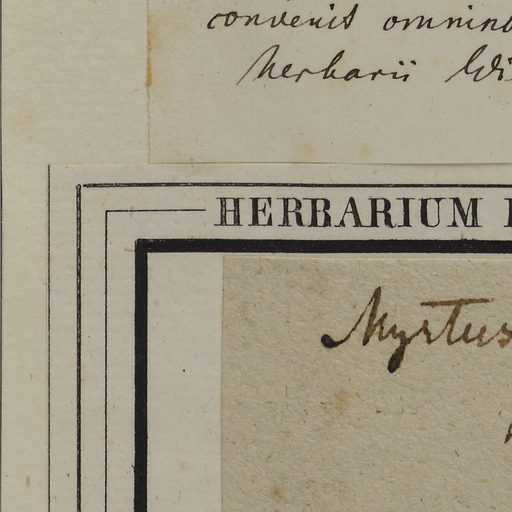 convenit omnino
herbarii Wi
HERBARIUM
Myrtus